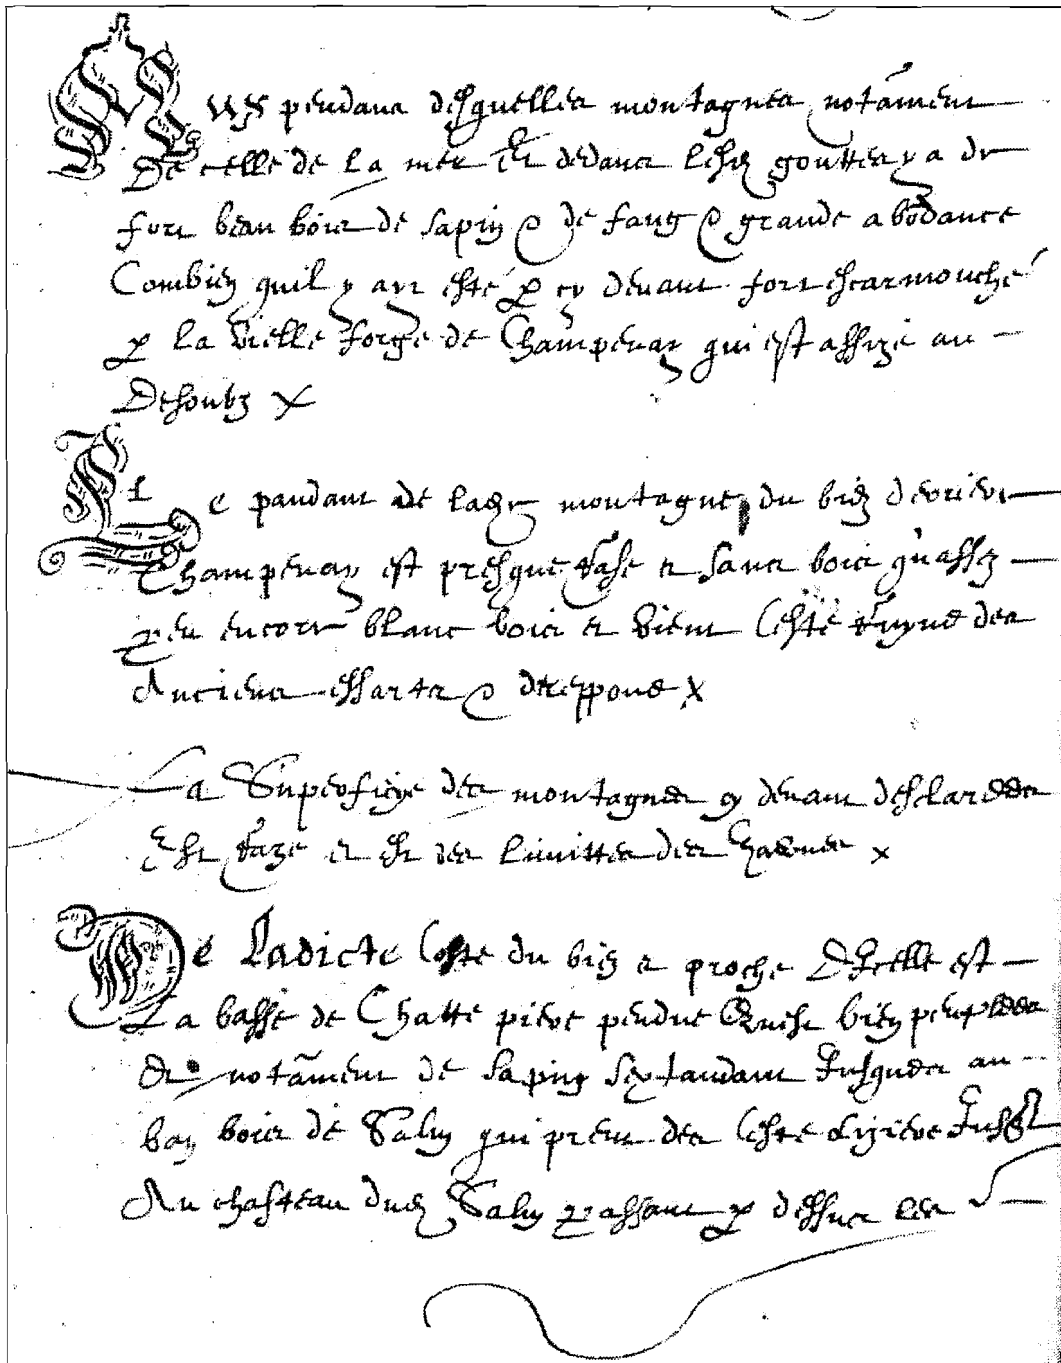 Aux pendans desquelles montagnes notāment
De celle de La mer Et dedans lesd gouttes y a de
fort beau bois de sapin & de faug & grande abōdance
Combien quil y ayt esté p cy devant fort escarmouché
p la vielle forge de Champenay qui est assize au
Desoubz
Le pandant de lade montagne du bien devers
Champenay est presque rase et sans bois qu'assez
peu encore blanc bois et vient ceste ruyne des
Anciens essarts &
La Superficye des montagnes cy devant desclarees
Est raze et est les limittes des
De Ladicte Coste du bien et proche Dicelle est
La basse de Chatte pierre pendue bien peuplee
Et notāment de sapin sextandant Jusques au
ban bois de Salm qui prent des ceste
Au chasteau dud Salm passant p dessus les